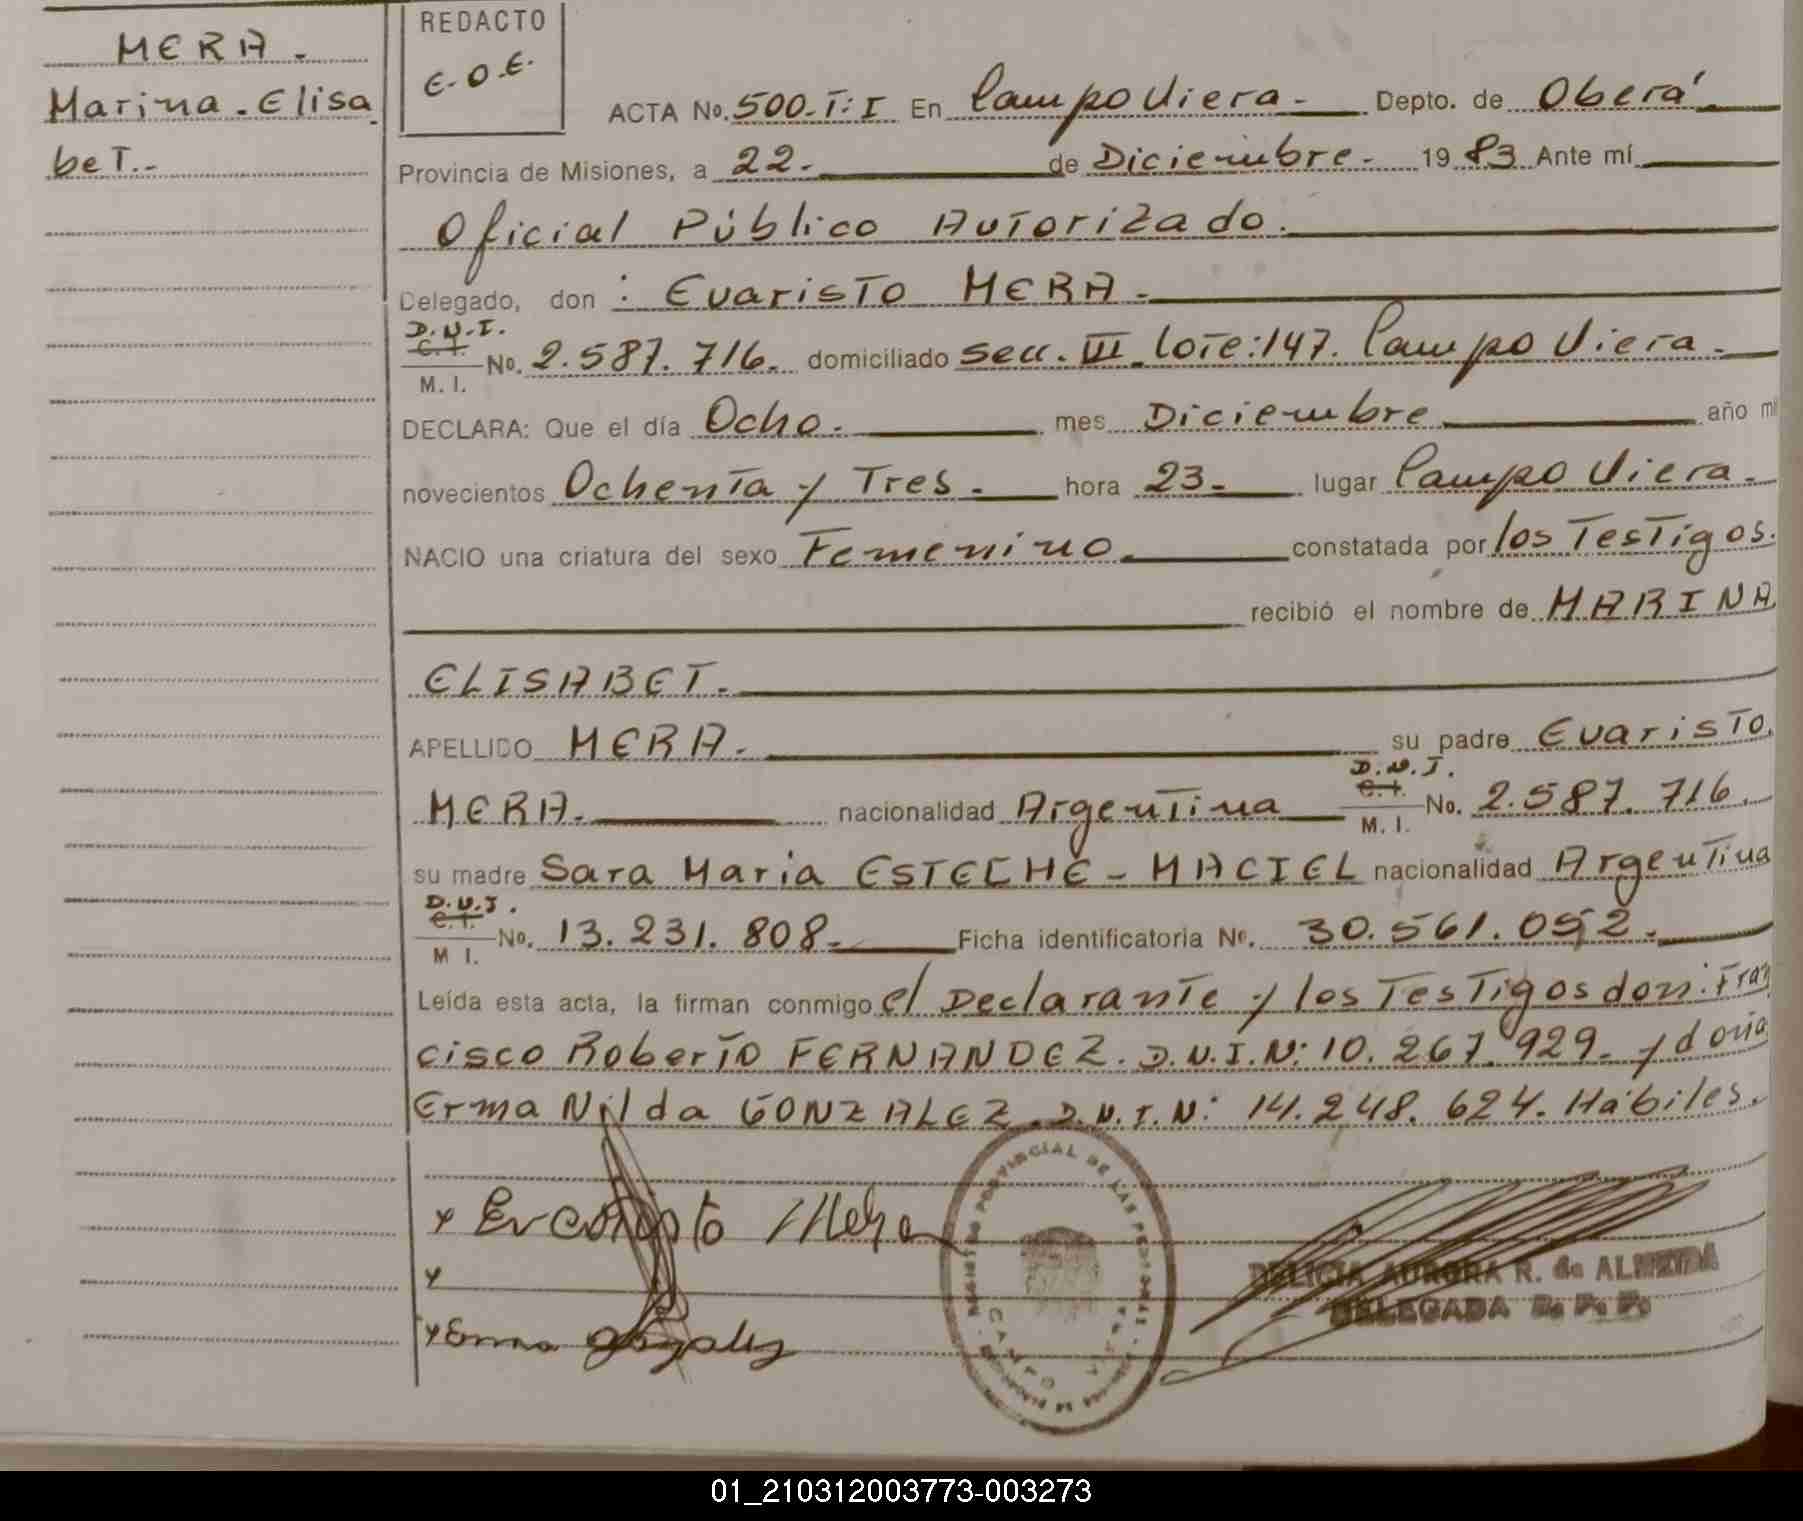 MERA.
Marina.Elisa
beT.-
REDACTO
E.O.E.
ACTA No. 500-T:I En Campo Viera.- Depto. de Oberá
Provincia de Misiones, a 22. de Diciembre. 1983 Ante mí
Oficial Público Autorizado.
Delegado, don : Evaristo MERA.
D.N.I.
C.I.
M. I. No. 2.587.716. domiciliado secc. III lote:147. Campo Viera.
DECLARA: Que el día Ocho. mes Diciembre año mi
novecientos Ochenta y Tres. hora 23. lugar Campo Viera.
NACIO una criatura del sexo Femenino. constatada por los Testigos.
recibió el nombre de MARINA
ELISABET.
APELLIDO MERA. su padre Evaristo
MERA. nacionalidad Argentina D.N.I. C.I. M. I. No. 2.587.716.
su madre Sara Maria ESTECHE - MACIEL nacionalidad Argentina
D.N.I.
C.I.
M I. No. 13.231.808. Ficha identificatoria No. 30.561.052.
Leída esta acta, la firman conmigo el Declarante y los Testigos don: Fran
cisco Roberto FERNANDEZ. D.N.I.N: 10.267.929. y doña
Erma Nilda GONZALEZ. D.N.I.N: 14.248.624. Hábiles.
x Evaristo Mera
x
x Erma Gonzalez
PROVINCIAL DE LAS PERSONAS
CAMPO
DELICIA AURORA R. de ALMEIDA
DELEGADA R. P. P.
01_210312003773-003273